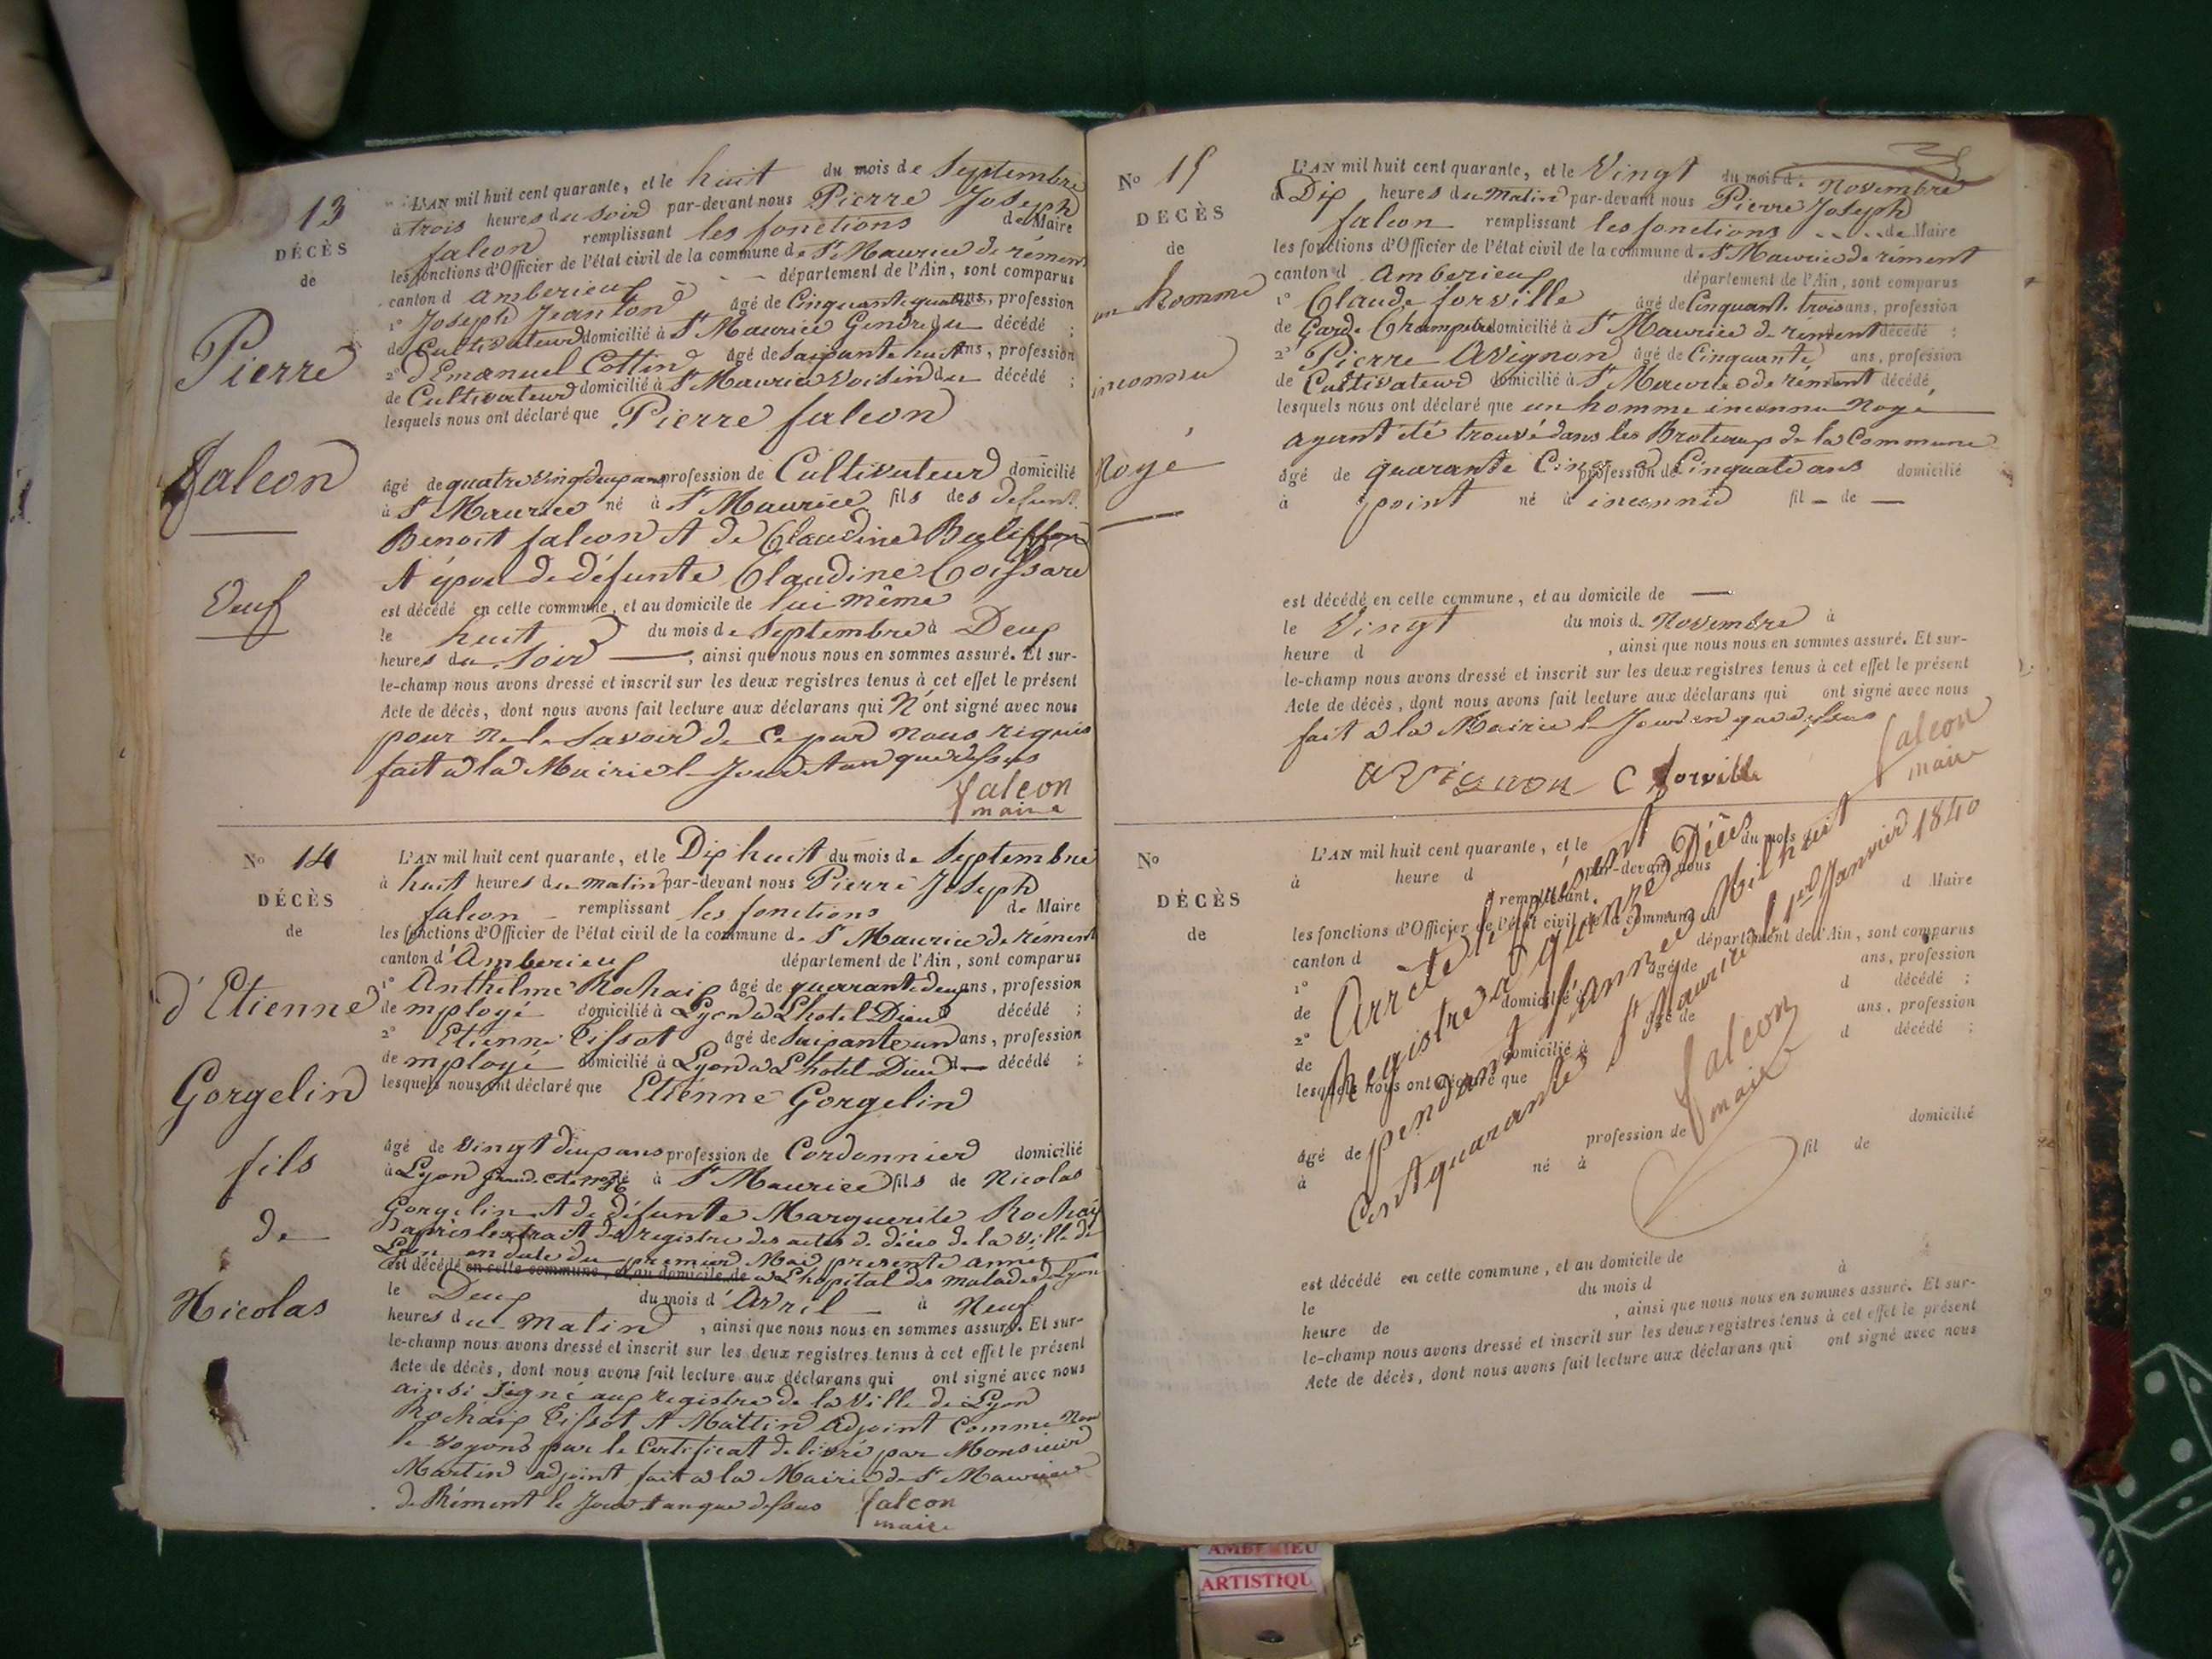 13
DÉCÈS
de
Pierre
falcon
Veuf
L'AN mil huit cent quarante, et le huit du mois de Septembre
à trois heures du Soir par-devant nous Pierre Joseph
falcon remplissant les fonctions de Maire
les fonctions d'Officier de l'état civil de la commune de St Maurice de rément
canton d amberieux département de l'Ain, sont comparus
1° Joseph Jeanton âgé de Cinquante quatre ans, profession
de Cultivateur domicilié à St Maurice Gendre du décédé ;
2° d'Emanuel Cottin âgé de Soixante huit ans, profession
de Cultivateur domicilié à St Maurice Voisin du décédé ;
lesquels nous ont déclaré que Pierre falcon
âgé de quatre vingt deux ans profession de Cultivateur domicilié
à St Maurice né à St Maurice fils des defunt
Benoit falcon et de Claudine
et époux de défunte Claudine
est décédé en cette commune, et au domicile de lui même
le huit du mois de Septembre à Deux
heures du Soir , ainsi que nous nous en sommes assuré. Et sur-
le-champ nous avons dressé et inscrit sur les deux registres tenus à cet effet le présent
Acte de décès, dont nous avons fait lecture aux déclarans qui N'ont signé avec nous
pour ne le Savoir de ce par nous requis
fait a la Mairie le Jour et an que dessus
falcon
maire
No 14
DÉCÈS
de
d'Etienne
Gorgelin
fils
de
Nicolas
L'AN mil huit cent quarante, et le Dix huit du mois de Septembre
à huit heures du matin par-devant nous Pierre Joseph
falcon remplissant les fonctions de Maire
les fonctions d'Officier de l'état civil de la commune de St Maurice de rément
canton d'Amberieux département de l'Ain, sont comparus
1° Anthelme Rochaix âgé de quarante deux ans, profession
de mployé domicilié à Lyon a L'hotel Dieu décédé ;
2° Etienne Tissot âgé de Soixante un ans, profession
de mployé domicilié à Lyon a L'hotel Dieu d décédé ;
lesquels nous ont déclaré que Etiénne Gorgelin
âgé de vingt deux ans profession de Cordonnier domicilié
à Lyon né à St Maurice fils de Nicolas
Gorgelin et de défunte Marguerite Rochaix
D'après lextrait du registre des actes de décès de la Ville de
Lyon en date du premier Mai présente année
est décédé en cette commune, et au domicile de a L'hopital des malades de Lyon
le Deux du mois d'Avril à Neuf
heures du Matin , ainsi que nous nous en sommes assuré. Et sur-
le-champ nous avons dressé et inscrit sur les deux registres tenus à cet effet le présent
Acte de décès, dont nous avons fait lecture aux déclarans qui ont signé avec nous
ainsi Signé aux registre de la Ville de Lyon
Rochaix Tissot et Mattin adjoint Comme Nous
le voyons par le Certificat delivré par Monsieur
Martin adjoint fait a la Mairie de St Maurice
de Rément le Jour et an que dessus falcon
maire
No 15
DÉCÈS
de
un homme
inconnu
Noyé
L'AN mil huit cent quarante, et le Vingt du mois de Novembre
à Dix heures du Matin par-devant nous Pierre Joseph
falcon remplissant les fonctions de Maire
les fonctions d'Officier de l'état civil de la commune de St Maurice de rément
canton d Amberieux département de l'Ain, sont comparus
1° Claude forville âgé de Cinquante trois ans, profession
de Garde Champetre domicilié à St Maurice de rément décédé ;
2° Pierre Avignon âgé de Cinquante ans, profession
de Cultivateur domicilié à St Maurice de rément décédé,
lesquels nous ont déclaré que un homme inconnu Noyé
ayant été trouvé dans les Broteaux de la Commune
âgé de quarante Cinq a Cinquate ans profession de domicilié
à point né à inconnu fil de
est décédé en cette commune, et au domicile de
le Vingt du mois d. Novembre à
heure d , ainsi que nous nous en sommes assuré. Et sur-
le-champ nous avons dressé et inscrit sur les deux registres tenus à cet effet le présent
Acte de décès, dont nous avons fait lecture aux déclarans qui ont signé avec nous
fait a la Mairie le Jour en que dessus
avignon C forville falcon
maire
No
DÉCÈS
de
L'AN mil huit cent quarante, et le du mois
à heure d par-devant nous
remplissant d Maire
les fonctions d'Officier de l'état civil de la commune d
canton d département de l'Ain, sont comparus
1° âgé de ans, profession
de domicilié à d décédé ;
2° âgé de ans, profession
de domicilié à d décédé ;
lesquels nous ont déclaré que
âgé de profession de domicilié
à né à fil de
Arrêté le présent
Registre a quinze Décès
pendant l'année Mil huit
Cent quarante St Maurice le 1er Janvier 1840
falcon
maire
est décédé en cette commune, et au domicile de
le du mois d à
heure de , ainsi que nous nous en sommes assuré. Et sur-
le-champ nous avons dressé et inscrit sur les deux registres tenus à cet effet le présent
Acte de décès, dont nous avons fait lecture aux déclarans qui ont signé avec nous
ARTISTIQU